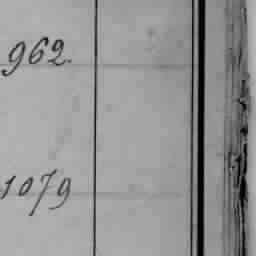 962.
1079